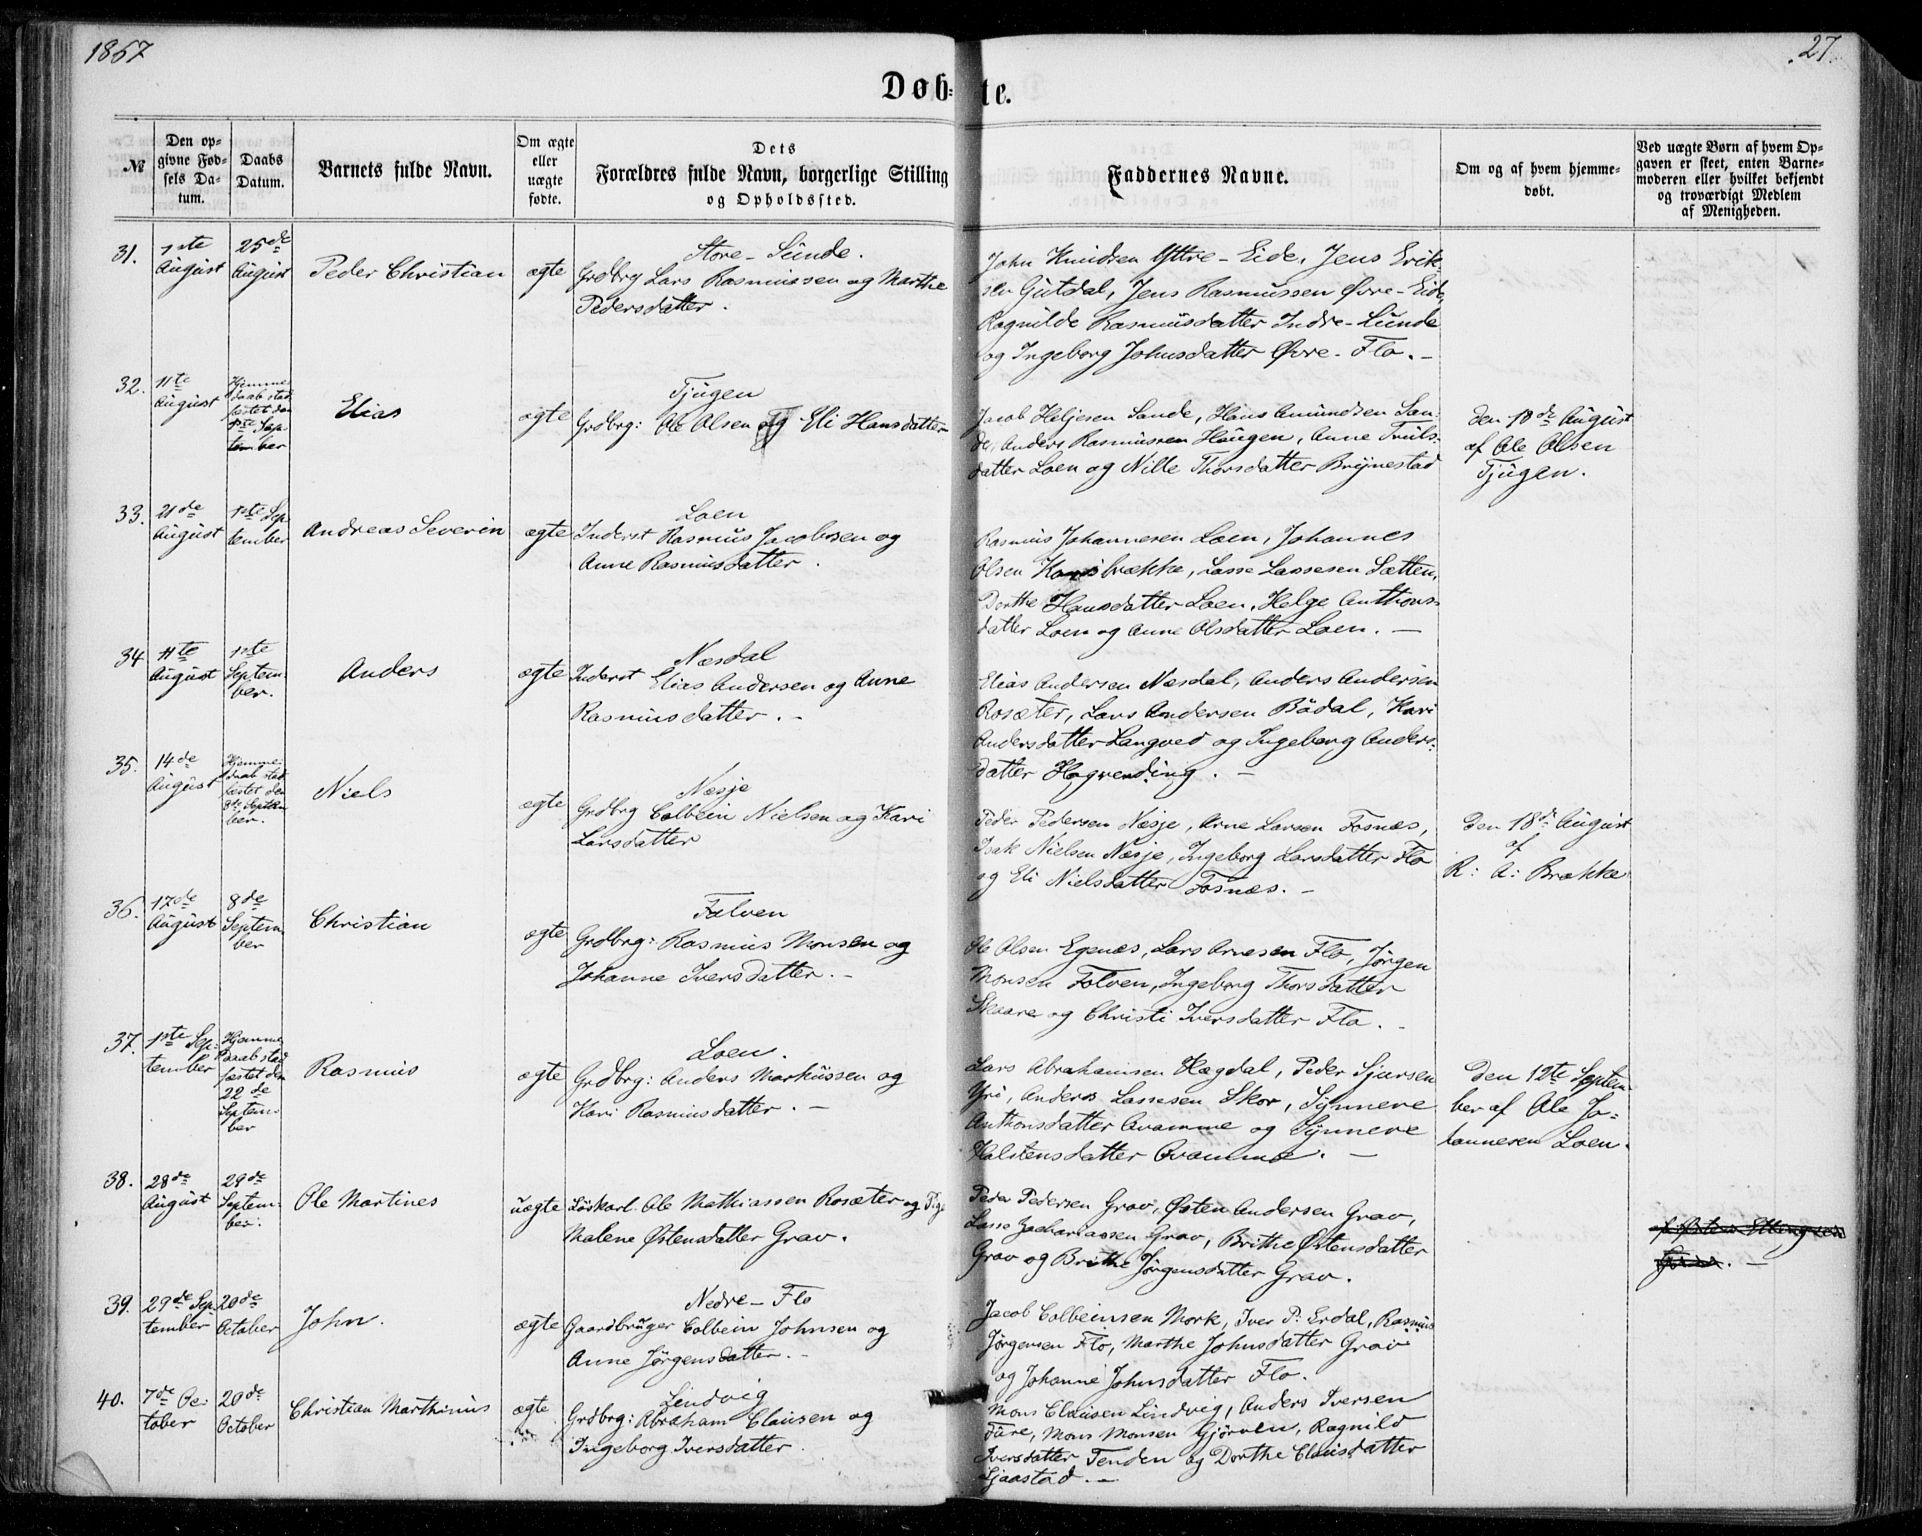 1867
27.
Døb-te.
№
Den op-
givne Fød-
sels Da-
tum.
Daabs
Datum.
Barnets fulde Navn.
Om ægte
eller
uægte
fødte.
Dets
Forældres fulde Navn, borgerlige Stilling
og Opholdssted.
Faddernes Navne.
Om og af hvem hjemme-
døbt.
Ved uægte Børn af hvem Op-
gaven er skeet, enten Barne-
moderen eller hvilket bekjendt
og troværdigt Medlem
af Menigheden.
31.
1ste
August
25de
August
Peder Christian
ægte
Store-Sunde.
Grdbrg Lars Rasmussen og Marthe
Pedersdatter.
John Knudsen Yttre-Eide, Jens Erik-
sen Gutdal, Jens Rasmussen Øvre-Eide,
Ragnilde Rasmusdatter Indre-Sunde
og Ingeborg Johnsdatter Øvre-Flo.-
32.
11te
August
Hjemme-
daab stad-
fæstet den
1ste Sep-
tember
Elias
ægte
Tjugen
Grdbrg: Ole Olsen og Eli Hansdatter
Jacob Heljesen Sande, Hans Amundsen San-
de, Anders Rasmussen Haugen, Anne Truls-
datter Loen og Nille Thorsdatter Brynestad
Den 18de August
af Ole Olsen
Tjugen.
33.
21de
August
1ste Sep-
tember
Andreas Severin
ægte
Loen
Inderst Rasmus Jacobsen og
Anne Rasmusdatter.
Rasmus Johannesen Loen, Johannes
Olsen brække, Lasse Lassesen Sætten,
Dorthe Hansdatter Loen, Helge Anthons-
datter Loen og Anne Olsdatter Loen.-
34
11te
August
1ste
Septem-
ber.
Anders
ægte
Næsdal
Inderst Elias Andersen og Anne
Rasmusdatter.-
Elias Andersen Næsdal, Anders Andersen
Rosæter, Lars Andersen Bødal, Kari
Andersdatter Langved og Ingeborg Anders-
datter Hogrending.-
35.
14de
August
Hjemme-
daab stad-
fæstet den
8de Septem-
ber.
Niels
ægte
Næsje
Grdbrg Colbein Nielsen og Kari
Larsdatter
Peder Pedersen Næsje, Arne Larsen Fosnæs,
Isak Nielsen Næsje, Ingeborg Larsdatter Flo
og Eli Nielsdatter Fosnæs.-
Den 18de August
af
R: A: Brække
36.
17de
August
8de
Septem-
ber
Christian
ægte
Folven
Grdbrg: Rasmus Monsen og
Johanne Iversdatter.-
Ole Olsen Egenæs, Lars Arnesen Flo, Jørgen
Monsen Folven, Ingeborg Thorsdatter
Skaare og Christi Iversdatter Flo.-
37.
1ste Sep-
tember
Hjemme-
daab stad-
fæstet den
22de
Septem-
ber
Rasmus
ægte
Loen.
Grdbrg: Anders Markussen og
Kari Rasmusdatter.-
Lars Abrahamsen Hægdal, Peder Sjursen
Yri, Anders Lassesen Skor, Synneve
Anthonsdatter Qvamme og Synneve
Halstensdatter Qvamme.-
Den 12te Septem-
ber af Ole Jo-
hannesen Loen.
38.
28de
August
29de
Septem-
ber.
Ole Martines
uægte
Løskarl Ole Mathiassen Rosæter og Pige
Malene Østensdatter Grav.
Peder Pedersen Grav, Østen Andersen Grav,
Lasse Zachariassen Grav, Brithe Østensdatter
Grav og Brithe Jørgensdatter Grav.
39.
29de Sep-
tember
20de
October
John.
ægte
Nedre-Flo
Gaardbruger Colbein Johnsen og
Anne Jørgensdatter.-
Jacob Colbeinsen Mork, Iver P. Erdal, Rasmus
Jørgensen Flo, Marthe Johnsdatter Grav
og Johanne Johnsdatter Flo.
40.
7de Oc-
tober
20de
October
Christian Marthinus
ægte
Lindvig
Grdbrg: Abraham Clausen og
Ingeborg Iversdatter.
Mons Clausen Lindvig, Anders Iversen
Fure, Mons Monsen Gjørven, Ragnild
Iversdatter Tenden og Dorthe Clausdatter
Ljaastad.-